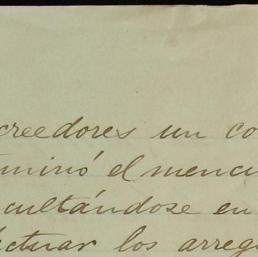 creedores un co
minó el menci
cultándose en
ctuar los arreg